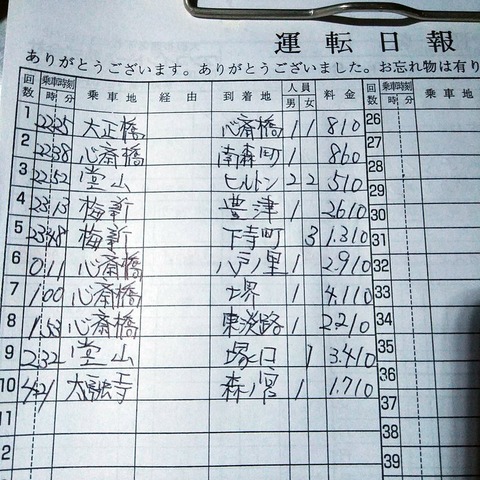 運転日報
ありがとうございます。ありがとうございました。お忘れ物は有り
回数 乗車時刻 時 分 乗車地 経由 到着地 人員 男 女 料金 回数 乗車時刻 時 分 乗車地
1 22 25 大正橋 心斎橋 1 1 810 26
2 22 38 心斎橋 南森町 1 860 27
3 22 52 堂山 ヒルトン 2 2 510 28
4 23 13 梅新 豊津 1 2610 29
5 23 48 梅新 下寺町 3 1.310 31
6 0 11 心斎橋 八戸ノ里 1 2.910 32
7 1 00 心斎橋 堺 1 4.110 33
8 1 53 心斎橋 東淡路 1 2210 34
9 2 32 堂山 塚口 1 3.410 35
10 4 21 太融寺 森ノ宮 1 1.710 36
11 37
2 38
3 39
30